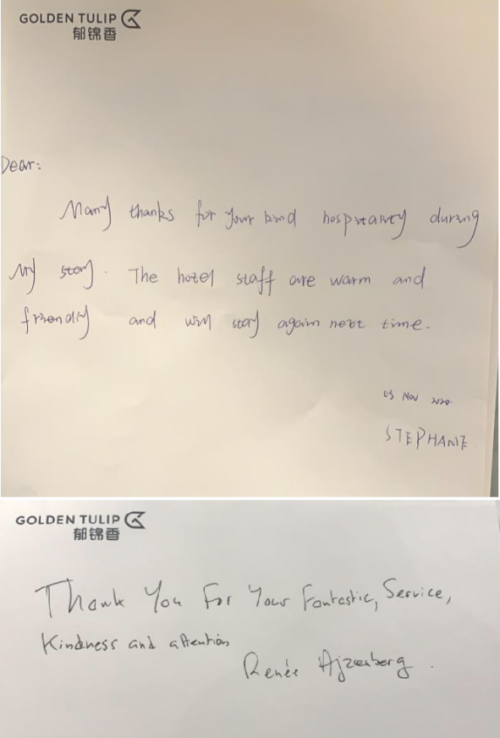 GOLDEN TULIP
郁锦香
Dear:
Many thanks for your kind hospitality during
My stay. The hotel staff are warm and
friendly and will stay again next time.
03 Nov 2020
STEPHANIE
GOLDEN TULIP
郁锦香
Thank You For Your Fantastic, Service,
Kindness and attention
Renée Ajzenberg.